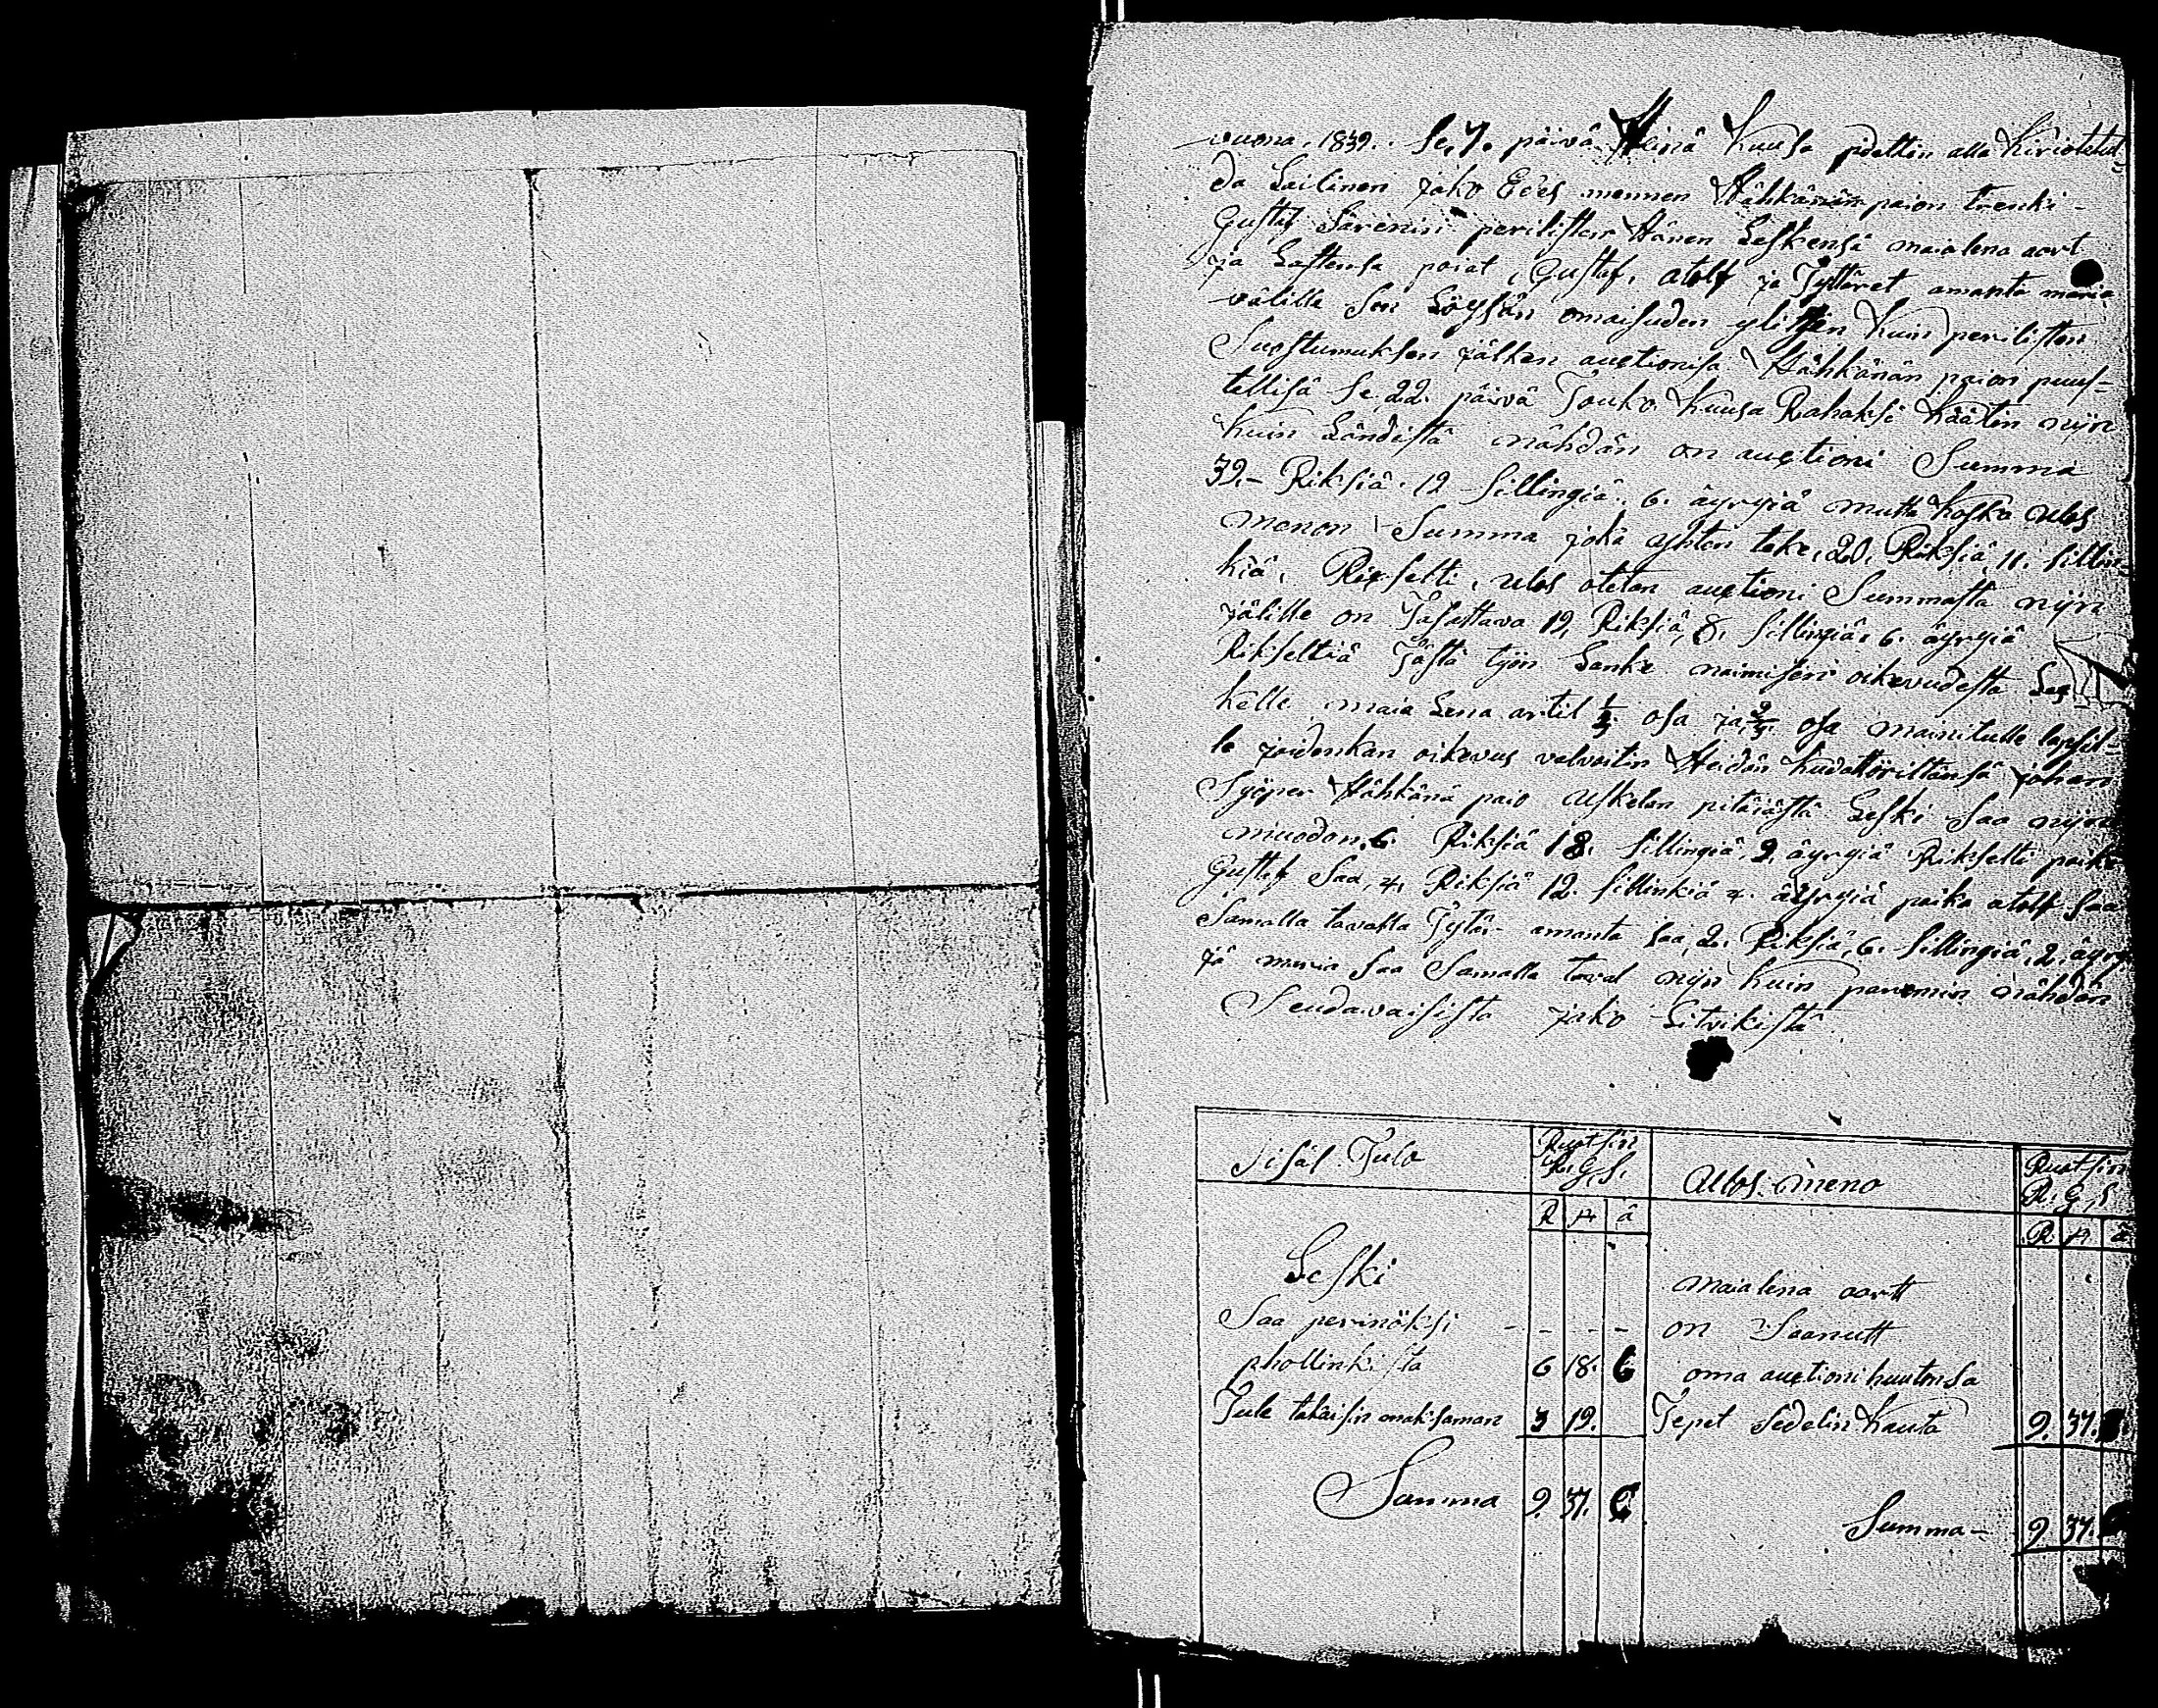 vuona. 1839. Se. 7. päivä Heinä Kuusa pidettin alla Kirioitetut-
da Lailinen jako Edes mennen Hähkänän paion trenki-
Gustaf Sirenin perilisten Hänen Leskensä maialena aart
ja Lastensa poiat, Gustaf, atolf ja Tyttäret amanta maria
välille Sen Löysän omaisuden ylitzen Kuin perilisten
Suostumuksen jälken auctionisa Hähkänän paion puus-
tellisä Se 22. päivä Touko Kuusa Rahaksi Käätin nijn
Kuin Ländistä nähdän on auctioni Summa
39.- Riksiä. 19 Sillingiä. 6. äyryiä mutta Koska ulos
menon Summa joka yhten teke, 20. Riksiä, 11. Sillin-
kiä. Rixsetti, ulos oteton auctioni Summasta nijn
jälille on Jasattava 19, Riksiä, 8. Sillingiä. 6. äyryiä
Riksettiä Tästä työn Lanke naimisen oikeudesta Les
kelle maia Lena artil 1/3 osa ja 2/3 osa mainitulle lapsil-
le joidenkan oikeus valvoitin Heidän Kudattöriltänsä johan
Syöper Hähkänä paio Uskelan pitäiästä Leski Saa nijn
muodon. 6. Riksiä 18. Sillingiä, 2. äyryiä Riksetti poika
Gustaf Saa, 4. Riksiä 12. Sillinkiä 4. äyryiä poika atolf Saa
Samalla tavalla Tytär amanta saa, 2. Riksiä, 6. Sillingiä, 2. äyry
jä maria Saa Samalla taval nijn Kuin paremin nähdän
Seudavaisista jako Litvikistä
Sisäl. Tulo
Ruotsin
R. G. S.
Ulos. meno
Ruotsin
R. G. S
R ä
R. ä
Leski
maialena aartt
Saa perinöksi - - - -
on Saanutt
phollinkista 6 18. 6
oma auctioni huutonsa
Tule takaisin maksaman 3 19.
Tepet Sedelin Kauta 9. 37.
Summa 9. 37. 6
Summa- 9 37.